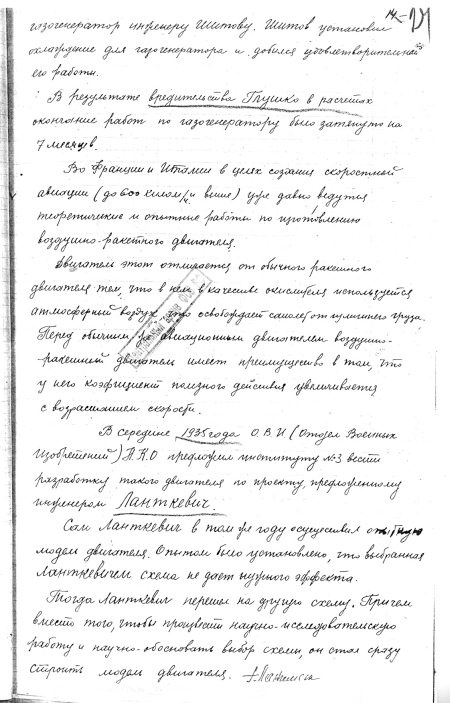 газогенератор инженеру Шитову. Шитов установил
охлаждение для газогенератора и добился удовлетворительной
его работы.
В результате вредительства Глушко в расчетах
окончание работ по газогенератору было затянуто на
7 месяцев.
Во Франции и Италии в целях создания скоростной
авиации (до 600 килом/ч и выше) уже давно ведутся
теоретические и опытные работы по изготовлению
воздушно-ракетного двигателя.
Двигатель этот отличается от обычного ракетного
двигателя тем, что в нем в качестве окислителя используется
атмосферный воздух, что освобождает самолет от лишнего груза.
Перед обычным авиационным двигателем воздушно-
ракетный двигатель имеет преимущество в том, что
у него коэфициент полезного действия увеличивается
с возрастанием скорости.
В середине 1935 года О.В.И (Отдел Военных
Изобретений) Н.К.О предложил институту №3 вести
разработку такого двигателя по проекту, предложенному
инженером Ланткевич.
Сам Ланткевич в том же году осуществил опытную
модель двигателя. Опытом было установлено, что выбранная
Ланткевичем схема не дает нужного эффекта.
Тогда Ланткевич перешел на другую схему. Причем
вместо того, чтобы произвести научно-исследовательскую
работу и научно-обосновать выбор схемы, он стал сразу
строить модель двигателя.